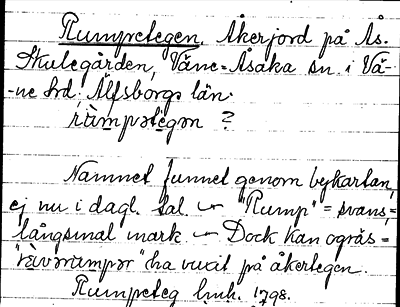 Rumpetegen. Åkerjord på Ås.
Skulegården, Väne-Åsaka sn. i Vä-
-ne hd. Älfsborgs län.
ràmpətègən ?
Namnet funnet genom bykartan,
ej nu i dagl. tal. "Rump" = svans, =
långsmal mark - Dock kan ogräs =
"rävərumpər" ha vuxit på åkertegen.
Rumpeteg hmk. 1798.